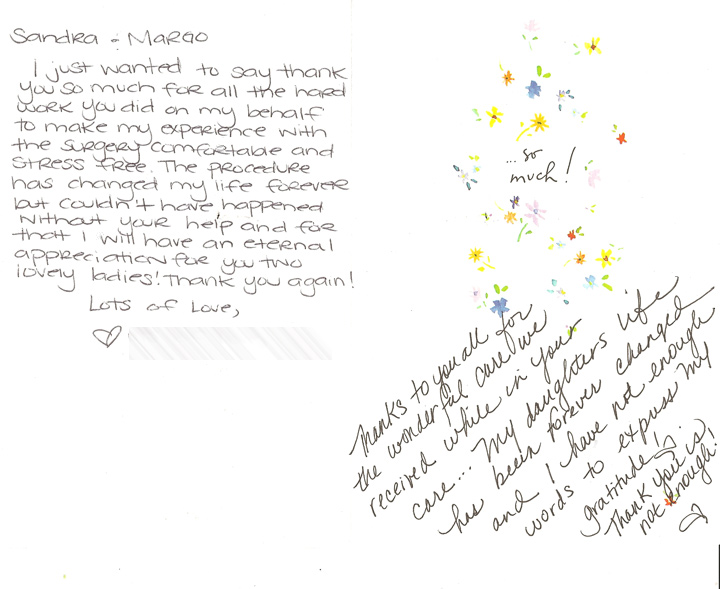 Sandra & Margo
I just wanted to say thank
you so much for all the hard
work you did on my behalf
to make my experience with
the surgery comfortable and
stress free. The procedure
has changed my life forever
but couldn't have happened
without your help and for
that I will have an eternal
appreciation for you two
lovely ladies! Thank you again!
Lots of Love,
...so
much!
Thanks to you all for
the wonderful care we
received while in your
care... My daughters life
has been forever changed
and I have not enough
words to express my
gratitude!
Thank you is
not enough!